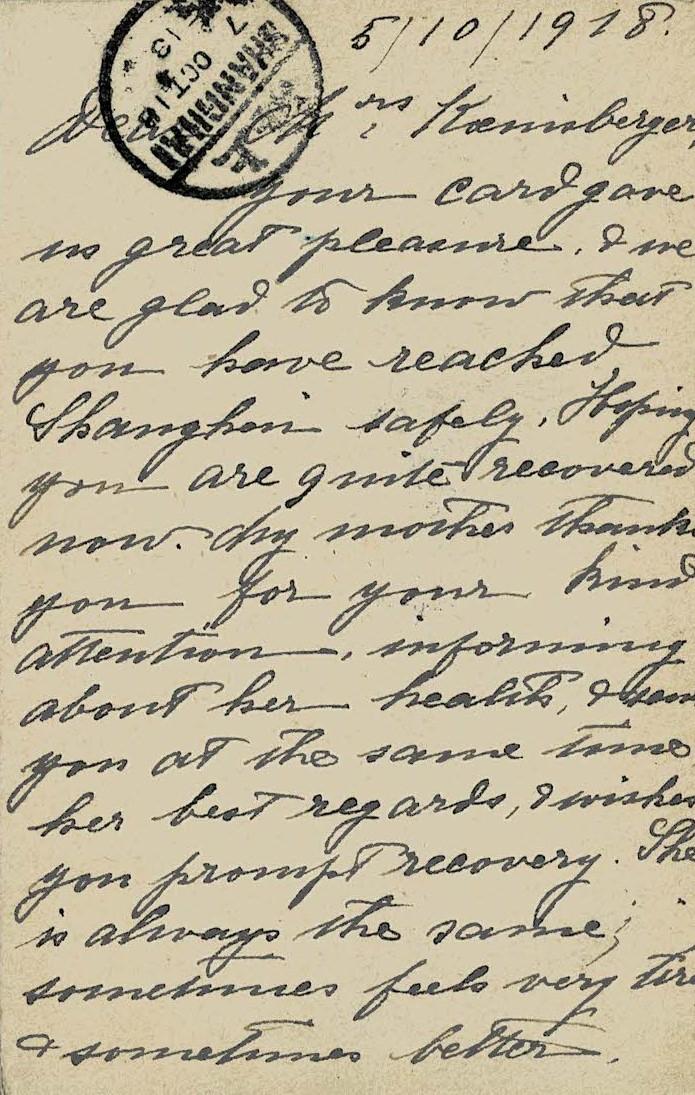 5/10/1918.
SHANGHAI
7
OCT 18
13
Dear Mrs Kœnisberger,
your card gave
us great pleasure, & we
are glad to know that
you have reached
Shanghai safely, Hoping
you are quite recovered
now. My mother thanks
you for your kind
attention, informing
about her health, & sen
you at the same time
her best regards, & wishes
you prompt recovery. She
is always the same;
sometimes feels very tire
& sometimes better.